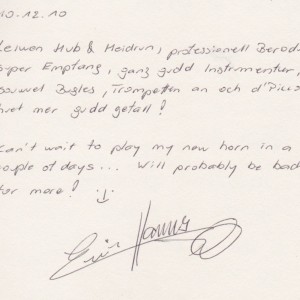 10-12.10
Leiwen Hub & Heidrun, professionell Berod
super Empfang, ganz gudd Instrumenter,
souwuel Bugles, Trompetten an och d'Picco
huet mer gudd gefall!
can't wait to play my new horn in a
couple of days... Will probably be back
for more! :)
Eric